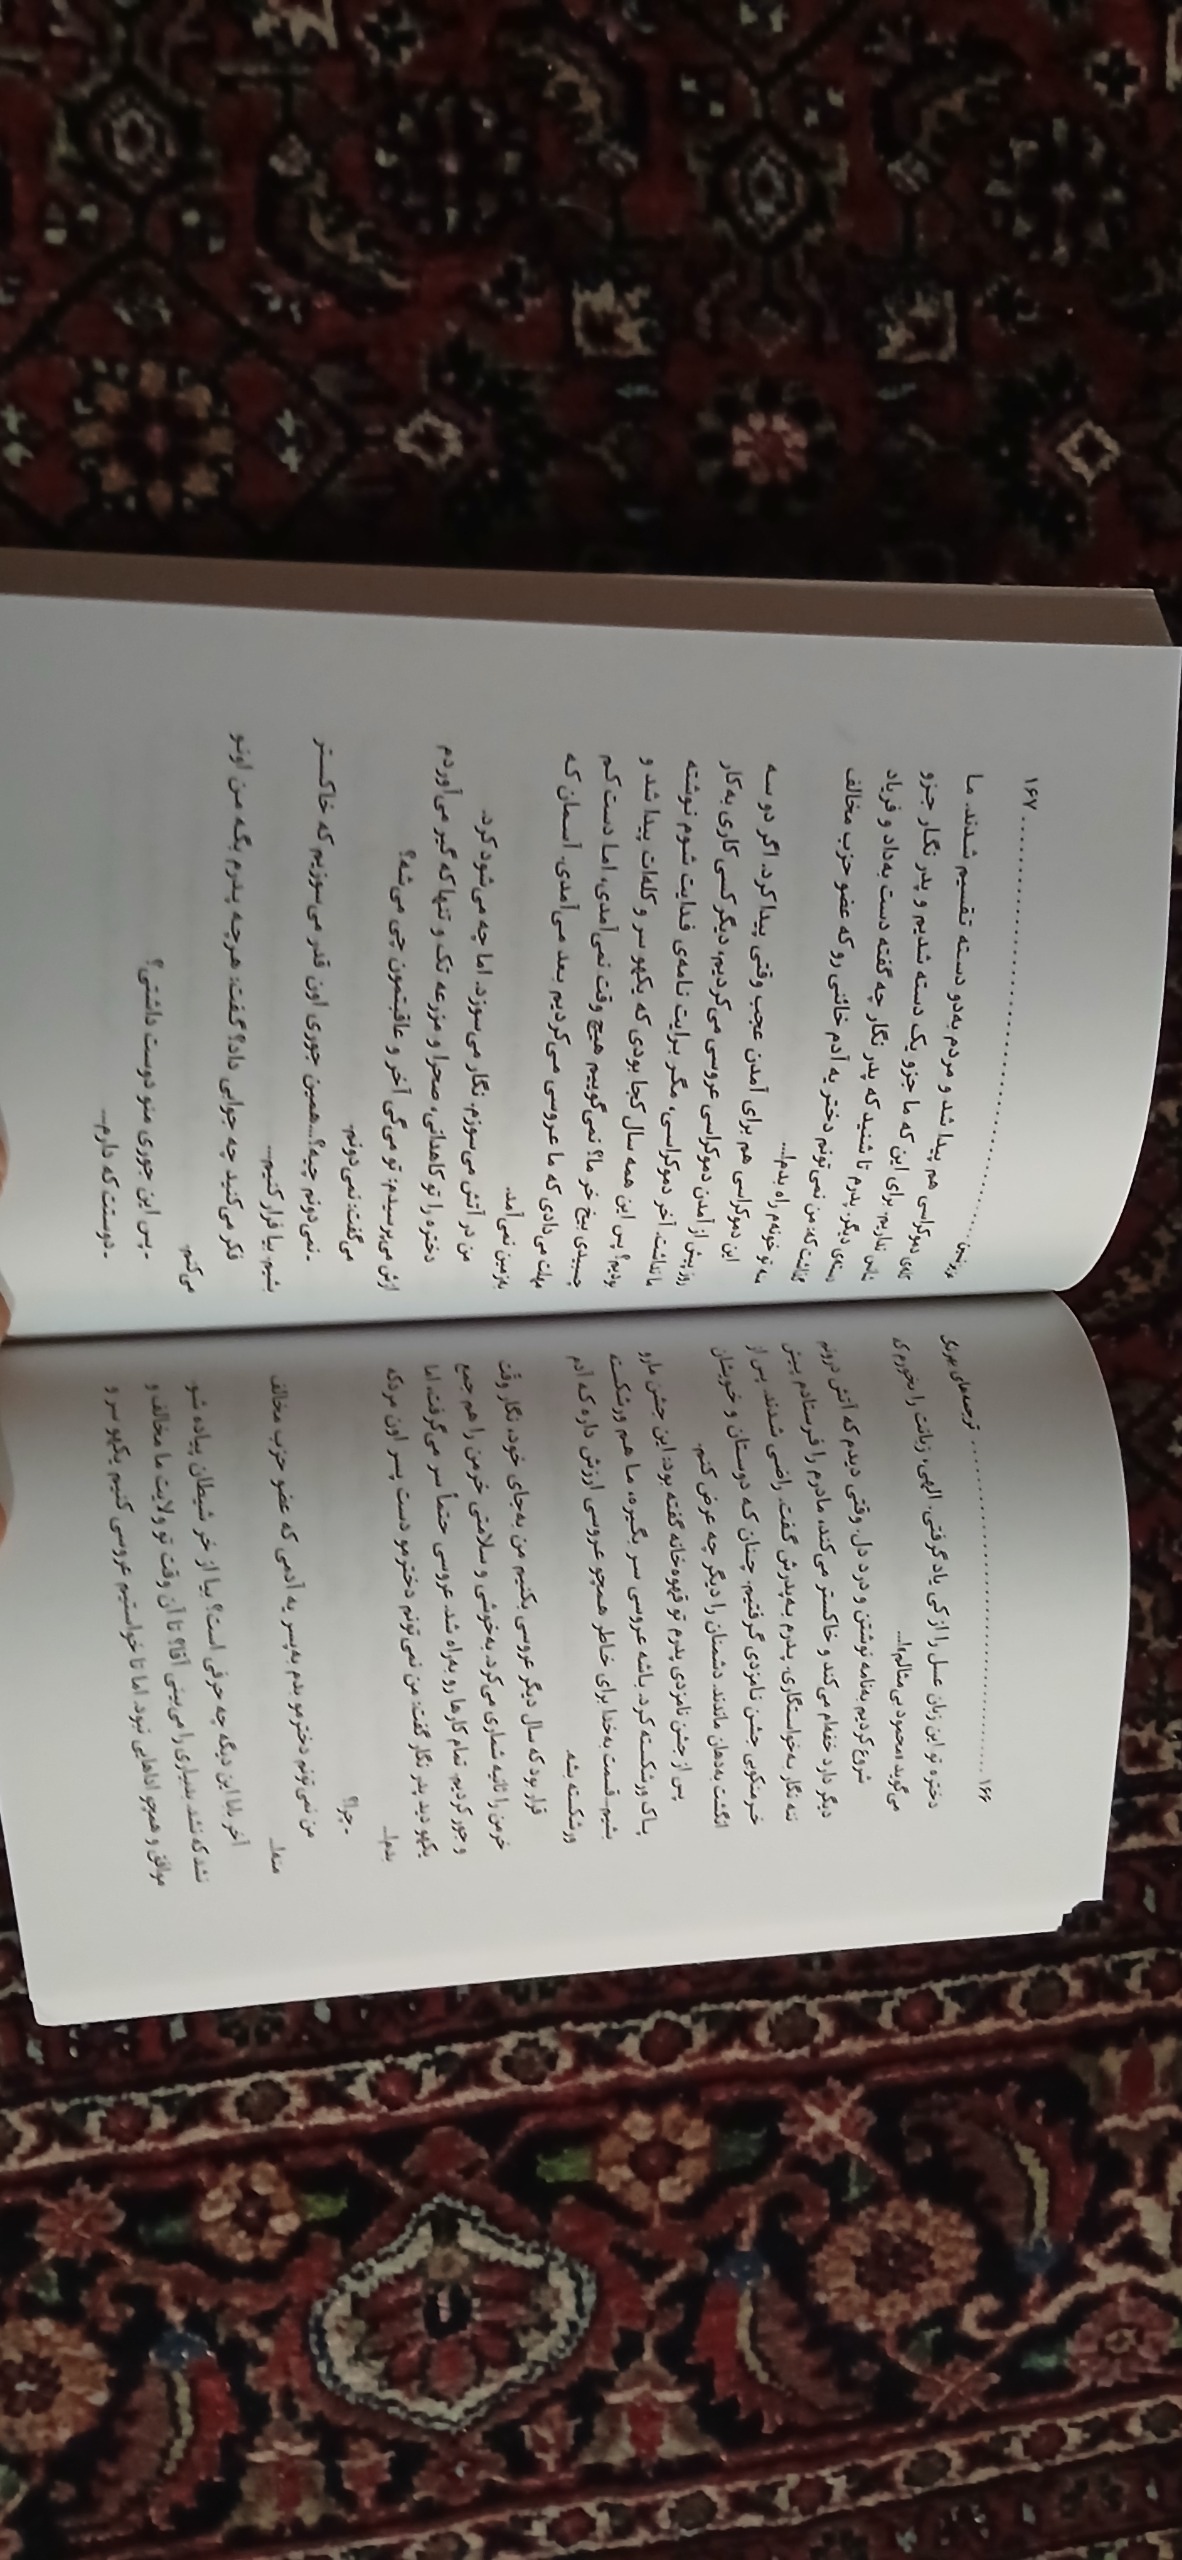 ۱۶۶ ........................ ترجمه‌های بهرنگی
دختره تو این زبان عسل را از کی یاد گرفتی. الهی، زبانت را بخورم که
می‌گوید «محمود بی‌مثالم»!...
شروع کردیم به‌نامه نوشتن و درد دل. وقتی دیدم که آتش درونم
دیگر دارد خفه‌ام می‌کند و خاکستر می‌کند، مادرم را فرستادم پیش
ننه نگار به‌خواستگاری. پدرم به‌پدرش گفت. راضی شدند. پس از
خرمنکوبی جشن نامزدی گرفتیم. چنان که دوستان و خویشان
انگشت به‌دهان ماندند. دشمنان را دیگر چه عرض کنم.
پس از جشن نامزدی پدرم تو قهوه‌خانه گفته بود: این جشن مارو
پاک ورشکسته کرد. باشه عروسی سر بگیره، ما هم ورشکسته
بشیم. قسمت به‌خدا برای خاطر همچو عروسی ارزش داره که آدم
ورشکسته بشه.
قرار بود که سال دیگر عروسی بکنیم. من به‌جای خود، نگار وقت
خرمن را ثانیه شماری می‌کرد. به‌خوشی و سلامتی خرمن را هم جمع
و جور کردیم. تمام کارها رو به‌راه شد. عروسی حتماً سر می‌گرفت، اما
یکهو دید پدر نگار گفت: من نمی‌تونم دخترمو دست پسر اون مردکه
بدم!...
ـ چرا؟
من نمی‌تونم دخترمو بدم به‌پسر یه آدمی که عضو حزب مخالف
منه!...
آخر بابا این دیگه چه حرفی است؟ بیا از خر شیطان پیاده شو.
نشد که نشد. بدبیاری را می‌بینی آقا؟ تا آن وقت تو ولایت ما مخالف و
موافق و همچو اداهایی نبود. اما تا خواستیم عروسی کنیم یکهو سر و
........................ ۱۶۷
کله‌ی دموکراسی هم پیدا شد و مردم به‌دو دسته تقسیم شدند. ما
شانس نداریم. برای این که ما جزو یک دسته شدیم و پدر نگار جزو
دسته‌ی دیگر. پدرم تا شنید که پدر نگار چه گفته دست به‌داد و فریاد
گذاشت که: من نمی‌تونم دختر یه آدم خائنی رو که عضو حزب مخالف
منه تو خونه‌م راه بدم!...
این دموکراسی هم برای آمدن عجب وقتی پیدا کرد. اگر دو سه
روز پیش از آمدن دموکراسی عروسی می‌کردیم، دیگر کسی کاری به‌کار
ما نداشت. آخر دموکراسی، مگر برایت نامه‌ی فدایت شوم نوشته
بودیم؟ پس این همه سال کجا بودی که یکهو سر و کله‌ات پیدا شد و
چسبیدی بیخ خر ما؟ نمی‌گوییم هیچ وقت نمی‌آمدی، اما دست کم
مهلت می‌دادی که ما عروسی می‌کردیم بعد می‌آمدی. آسمان که
به‌زمین نمی‌آمد.
من در آتش می‌سوزم. نگار می‌سوزد. اما چه می‌شود کرد.
دختره را تو کاهدانی، صحرا و مزرعه تک و تنها که گیر می‌آوردم
ازش می‌پرسیدم: تو می‌گی آخر و عاقبتمون چی می‌شه؟
می‌گفت: نمی‌دونم.
ـ نمی‌دونم چیه؟...همین جوری اون قدر می‌سوزیم که خاکستر
بشیم. بیا فرار کنیم...
فکر می‌کنید چه جوابی داد؟ گفت: هرچه پدرم بگه من اونو
می‌کنم.
ـ پس این جوری منو دوست داشتی؟
ـ دوستت که دارم...